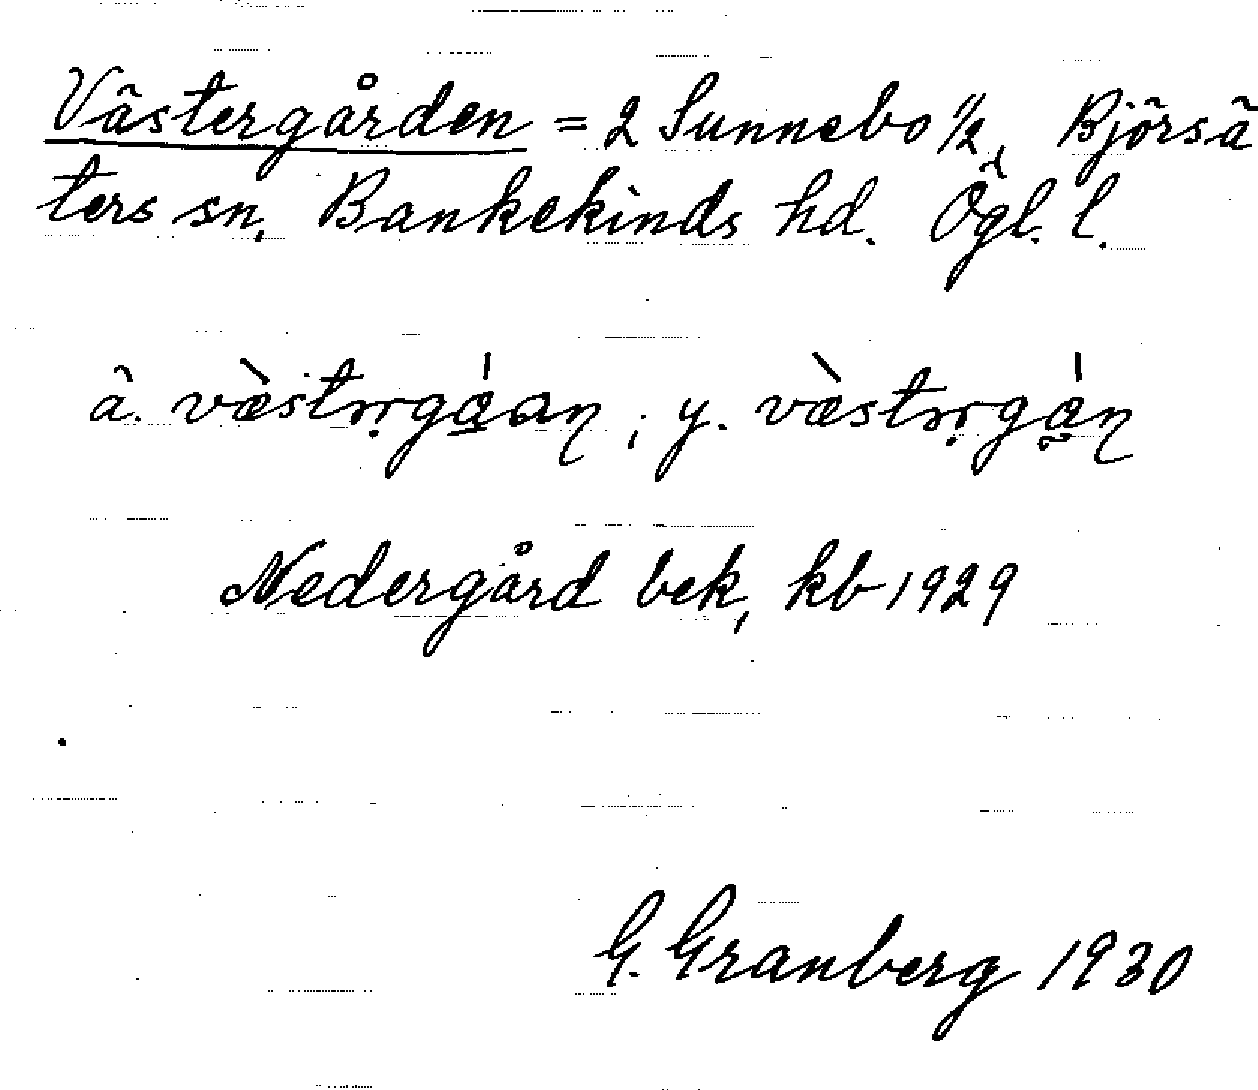 Västergården = 2 Sunnebo 1/2, Björsä
ters sn, Bankekinds hd. Ögl. l.
ä. væ̀strgáan ; y. væ̀strgán
Nedergård bek, kb 1929
G. Granberg 1930